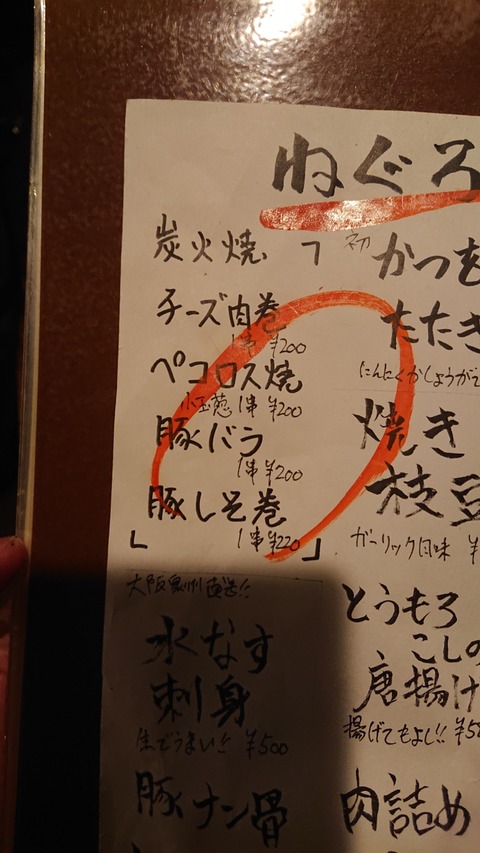 ねぐろ
炭火焼
チーズ肉巻
1串 ¥200
ペコロス焼
小玉葱 1串 ¥200
豚バラ
1串 ¥200
豚しそ巻
1串 ¥220
大阪泉州直送!!
水なす
刺身
生でうまい!! ¥500
豚ナン骨
初 かつを
たたき
にんにくかしょうが
焼き
枝豆
ガーリック風味 ¥
とうもろ
こしの
唐揚げ
揚げてもよし!! ¥5
肉詰め